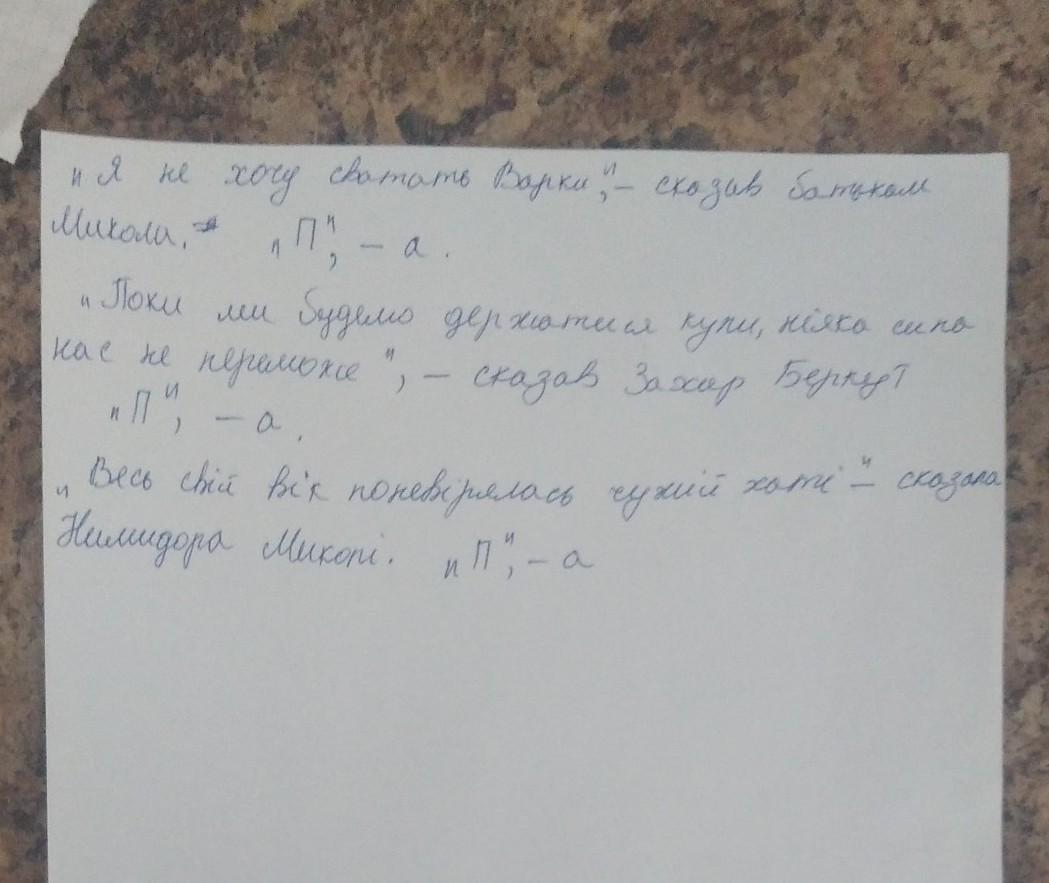 „Я не хочу сватать Варки", – сказав батькам
Микола. „П", – а.
„Поки ми будемо держатися купи, ніяка сила
нас не переможе", – сказав Захар Беркут
„П", – а.
„Весь свій вік поневірялась чужий хаті" – сказала
Нимидора Миколі. „П", – а